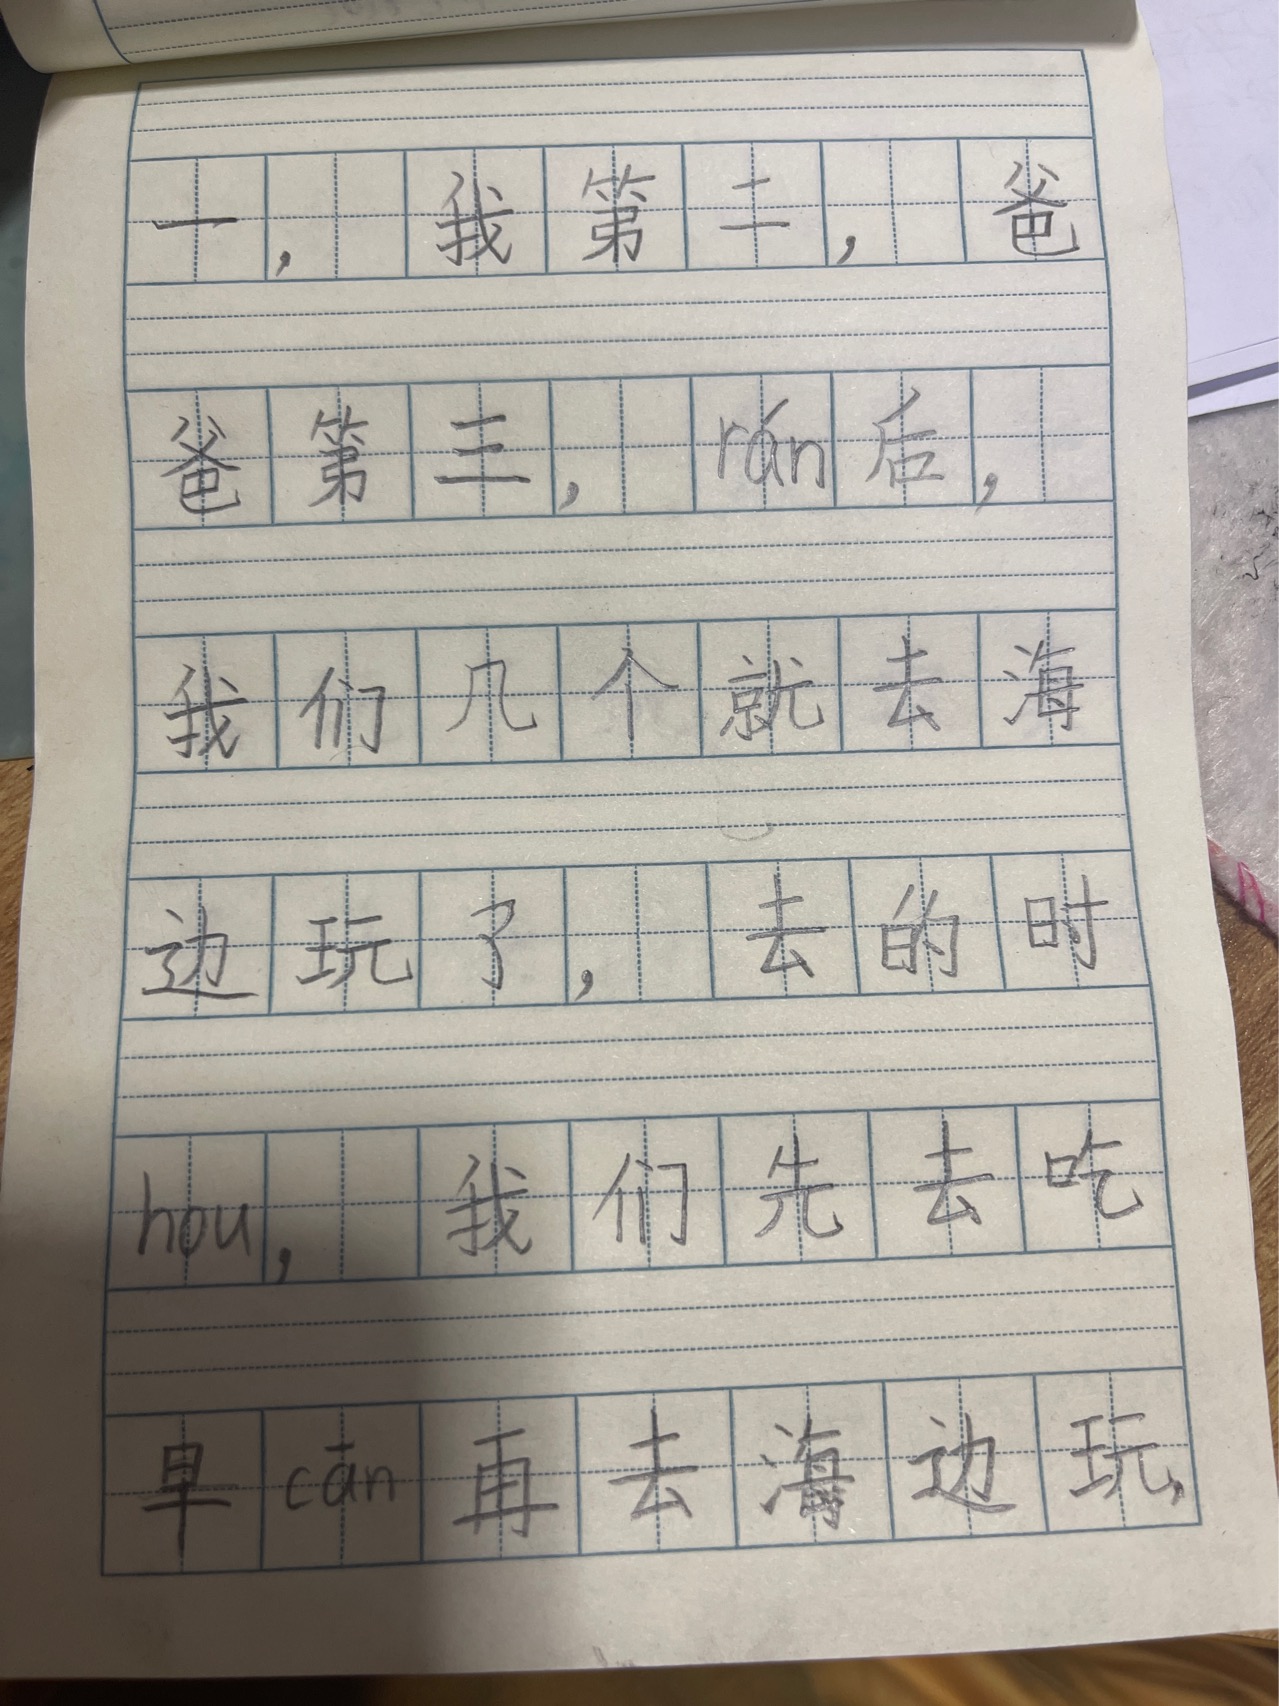 一，我第二，爸
爸第三，rán后，
我们几个就去海
边玩了，去的时
hou，我们先去吃
早cān再去海边玩，